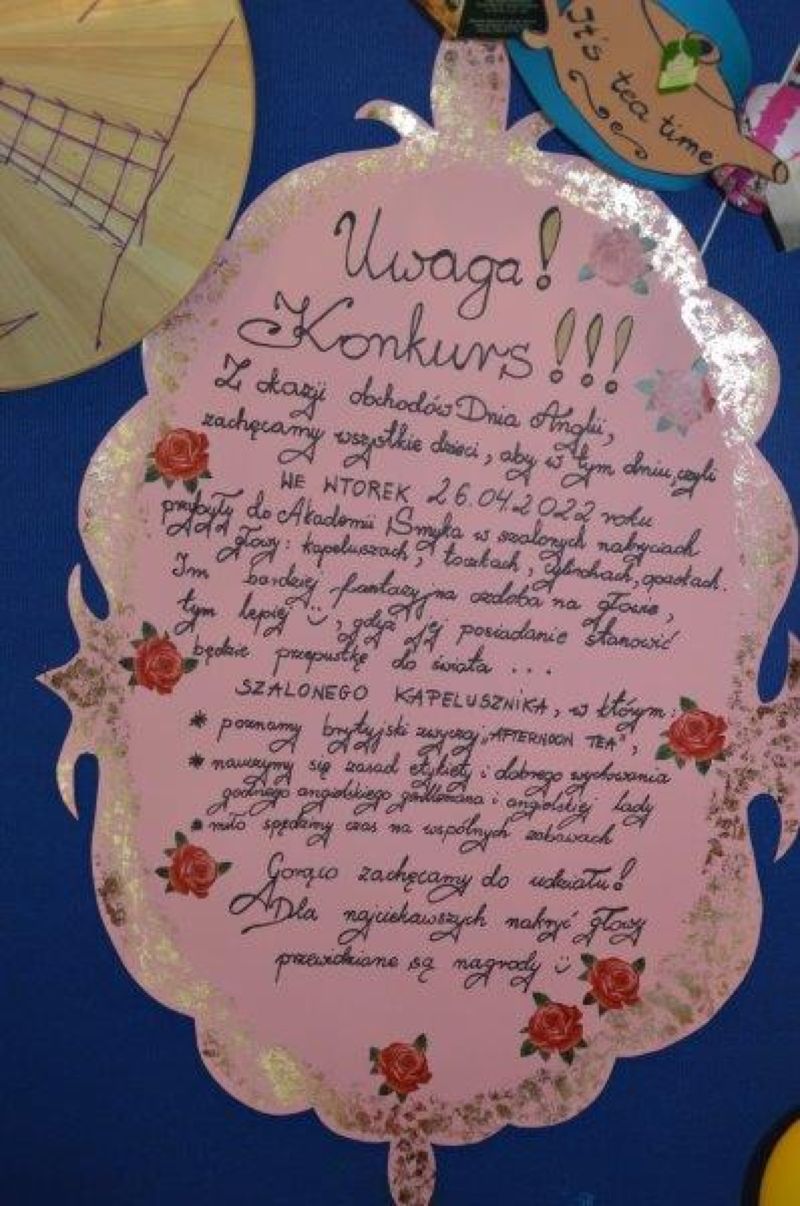 It's tea time
Uwaga!
Konkurs!!!
Z okazji obchodów Dnia Anglii,
zachęcamy wszystkie dzieci, aby w tym dniu, czyli
WE WTOREK 26.04.2022 roku
przybyły do Akademii Smyka w szalonych nakryciach
głowy: kapeluszach, toczkach, cylindrach, opaskach.
Im bardziej fantazyjna ozdoba na głowę,
tym lepiej ☺, gdyż jej posiadanie stanowić
będzie przepustkę do świata ...
SZALONEGO KAPELUSZNIKA, w którym:
* poznamy brytyjski zwyczaj „AFTERNOON TEA",
* nauczymy się zasad etykiety i dobrego wychowania
godnego angielskiego gentlemana i angielskiej lady
* miło spędzimy czas na wspólnych zabawach
Gorąco zachęcamy do udziału!
Dla najciekawszych nakryć głowy
przewidziane są nagrody ☺